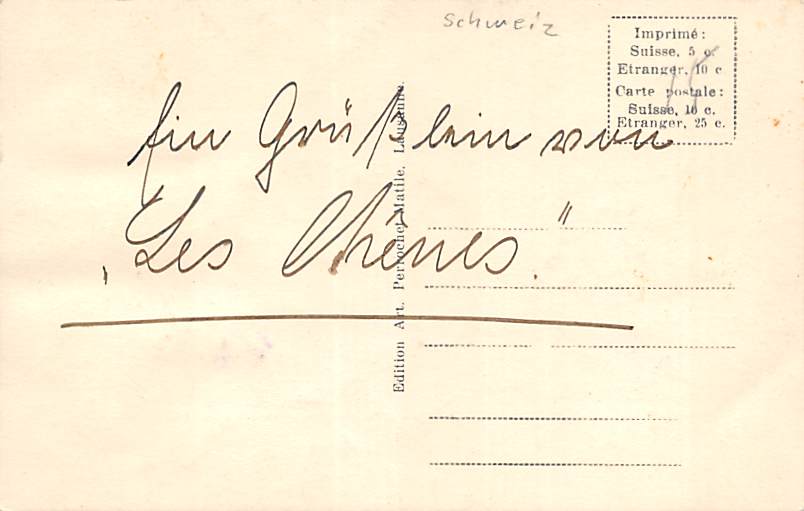 Schweiz
Imprimé:
Suisse, 5 c.
Etranger, 10 c
Carte postale:
Suisse, 10 c.
Etranger, 25 c.
Ein Grüßlein von
„Les Chênes."
Edition Art. Perrochet-Matile, Lausanne.